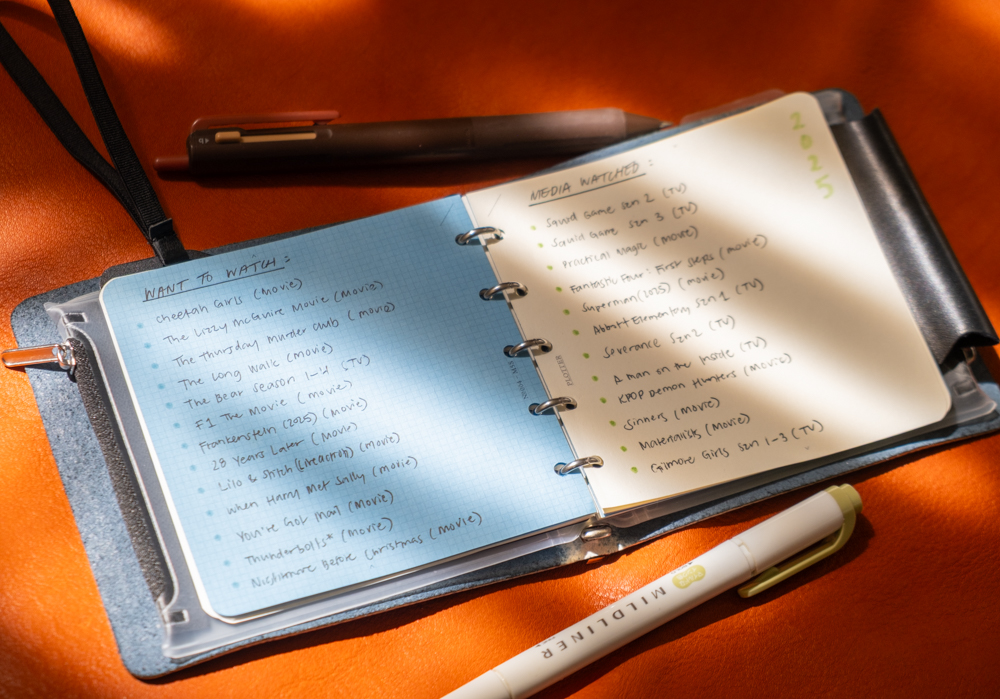 WANT TO WATCH:
cheetah Girls (Movie)
The Lizzy McGuire Movie (Movie)
The Thursday Murder club (movie)
The Long Walk (movie)
The Bear Season 1-4 (TV)
F1 The Movie (movie)
Frankenstein (2025) (Movie)
28 Years Later (Movie)
Lilo & Stitch (Liveaction) (movie)
When Harry Met Sally (movie)
You're Got Mail (Movie)
Thunderbolts* (Movie)
Nightmare Before Christmas (Movie)
2025
MEDIA WATCHED:
Squid Game Szn 2 (TV)
Squid Game Szn 3 (TV)
Practical Magic (movie)
Fantastic Four: First Steps (movie)
Superman (2025) (movie)
Abbott Elementary Szn 1 (TV)
Severance Szn 2 (TV)
A man on the Inside (TV)
KPOP Demon Hunters (Movie)
Sinners (Movie)
Materialists (Movie)
Gilmore Girls Szn 1-3 (TV)
PLOTTER
MILDLINER